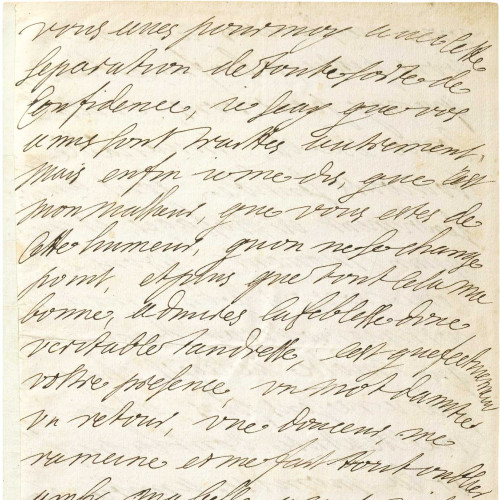 vous aves pour moy avec cette
separation de toute sorte de
confidence, ie scay que vos
amis sont traittes autrement,
mais enfin ie me dis, que cest
mon malheur, que vous estes de
cette humeur, quon ne se change
point, et plus que tout cela ma
bonne, admires la foiblesse dune
veritable tandresse, cest queffectivement
vostre presence, un mot damitie
un retour, une douceur, me
rameine et me fait tout oublier
ainsy ma belle